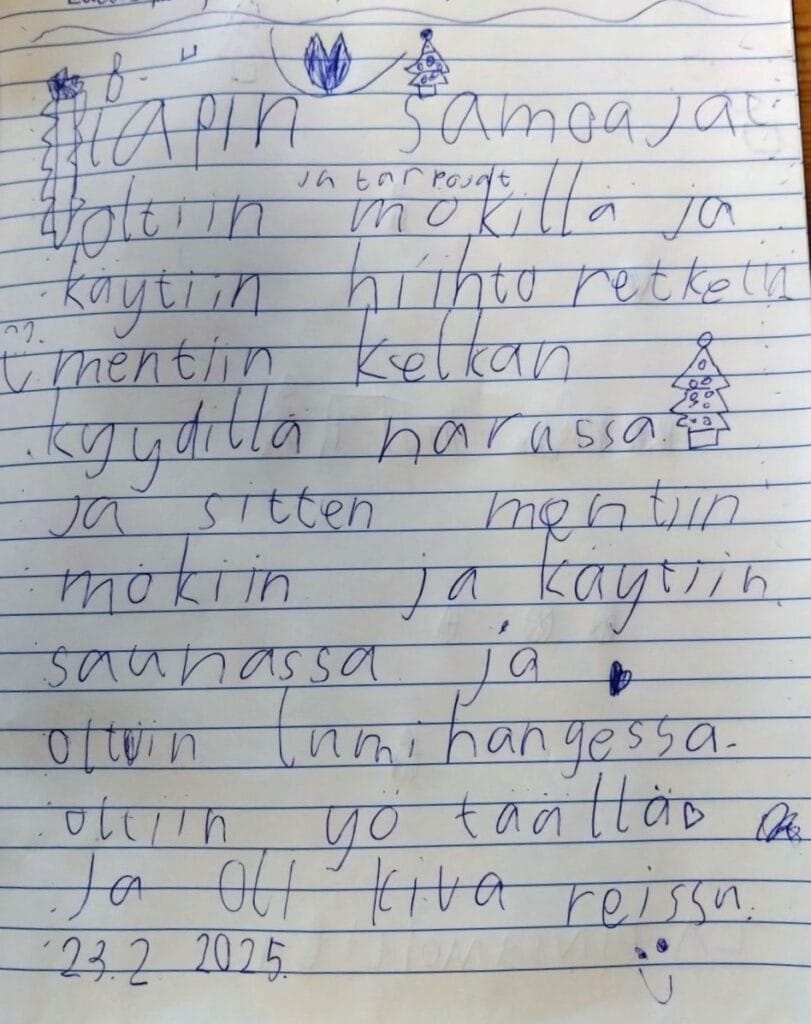 lapin samoaja
ja tarpojat
oltiin mökillä ja
käytiin hiihto retkellä
mentiin kelkan
kyydillä narussa.
ja sitten mentiin
mökiin ja käytiin
saunassa ja
oltiin lumihangessa.
oltiin yö täällä
Ja oli kiva reissu.
23.2 2025.